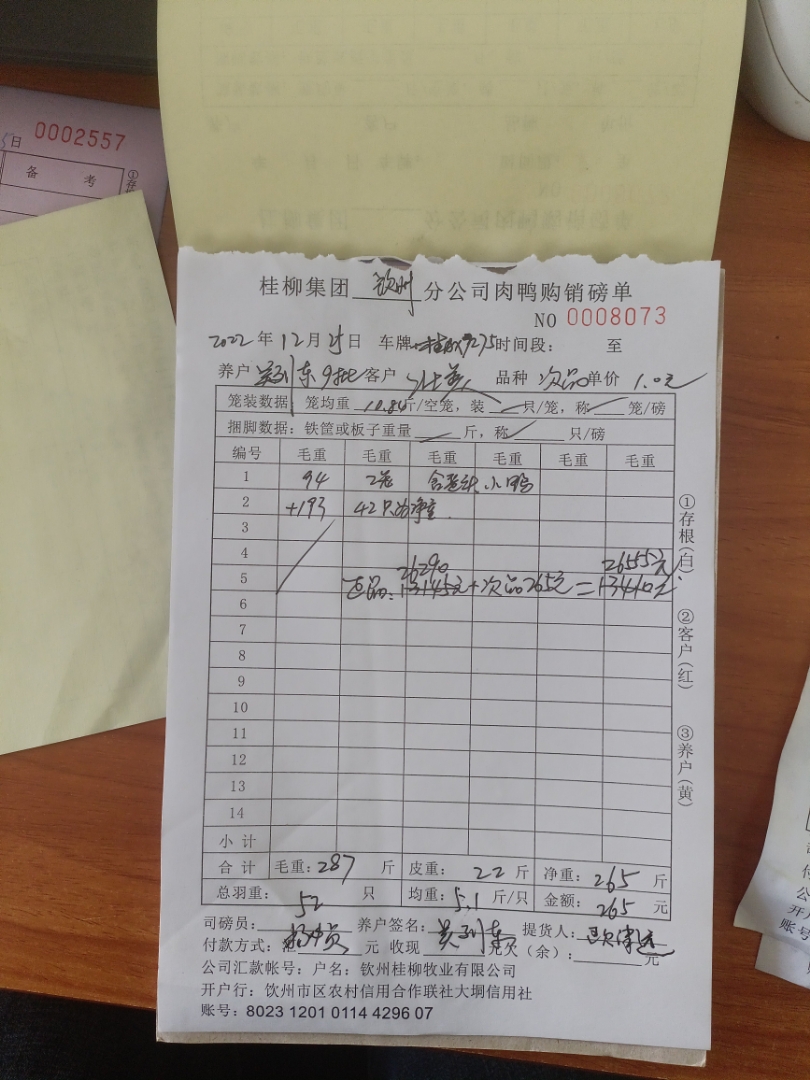 0002557
日
备 考
①存
桂柳集团 钦州 分公司肉鸭购销磅单
NO 0008073
2022 年 12 月 25 日 车牌 时间段： 至
养户 东 9批 客户 品种 次品 单价 1.0元
笼装数据：笼均重 10.84 斤/空笼，装 只/笼，称 笼/磅
捆脚数据：铁筐或板子重量 斤，称 只/磅
编号 毛重 毛重 毛重 毛重 毛重 毛重
1 94 2笼 小鸭
2 +193 42只 净重
3
4
26290 26555元
5 正品：13145元+次品265元=13410元
6
7
8
9
10
11
12
13
14
小 计
合 计 毛重：287 斤 皮重：22 斤 净重：265 斤
总羽重：52 只 均重：5.1 斤/只 金额：265 元
①存根(白)
②客户(红)
③养户(黄)
司磅员： 养户签名： 东 提货人：
付款方式：汇 元 收现 元欠（余）： 元
公司汇款帐号：户名：钦州桂柳牧业有限公司
开户行：钦州市区农村信用合作联社大垌信用社
账号：8023 1201 0114 4296 07
付
公
开户
账号